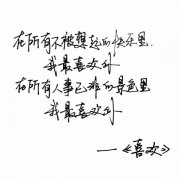 在所有不被想起的快乐里
我最喜欢你
在所有人事已非的景色里
我最喜欢你
—《喜欢》